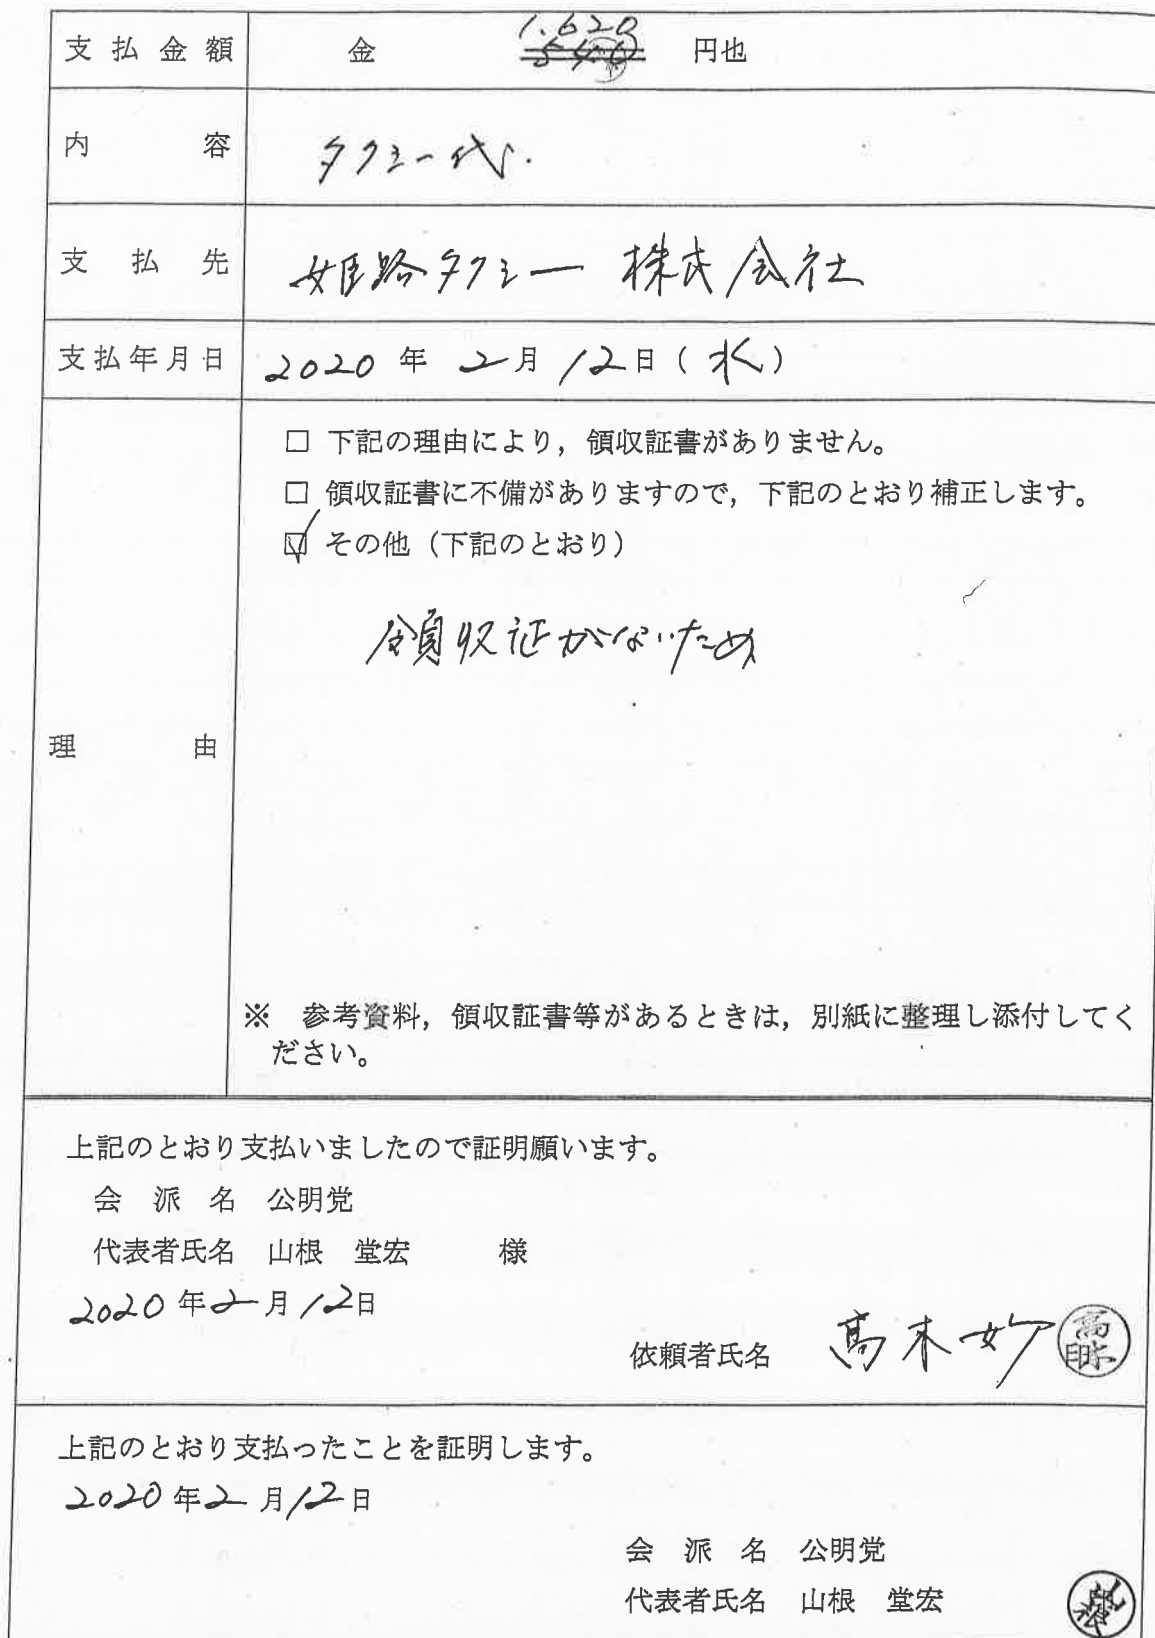 支払金額 金 1,620 円也
540
内容 タクシー代.
支払先 姫路タクシー 株式会社
支払年月日 2020年2月12日(水)
□ 下記の理由により,領収証書がありません。
□ 領収証書に不備がありますので,下記のとおり補正します。
☑ その他(下記のとおり)
領収証がないため
理由
※ 参考資料,領収証書等があるときは,別紙に整理し添付してく
ださい。
上記のとおり支払いましたので証明願います。
会派名 公明党
代表者氏名 山根 堂宏 様
2020年2月12日
依頼者氏名 髙木妙 印
上記のとおり支払ったことを証明します。
2020年2月12日
会派名 公明党
代表者氏名 山根 堂宏